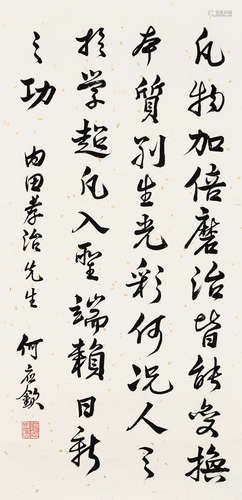 凡物加倍磨治皆能变换
本质别生光彩何况人之
於学超凡入圣端赖日新
之功
内田孝治先生
何应钦